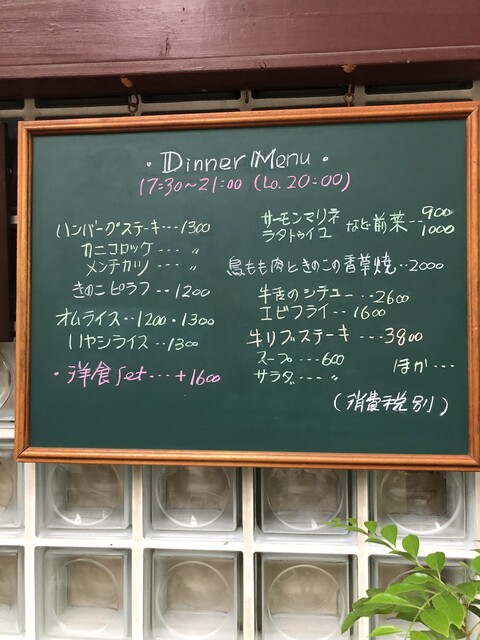 ・Dinner Menu・
17:30~21:00 (Lo. 20:00)
ハンバーグステーキ・・・1300
カニコロッケ・・・〃
メンチカツ・・・〃
きのこピラフ・・1200
オムライス・・1200・1300
ハヤシライス・・1300
・洋食 Set・・・+1600
サーモンマリネ
ラタトゥイユ
など前菜・・900
1000
鳥もも肉ときのこの香草焼・・2000
牛舌のシチュー・・・2600
エビフライ・・1600
牛リブステーキ・・・3800
スープ・・・600
サラダ・・・・〃
ほか・・・
(消費税別)